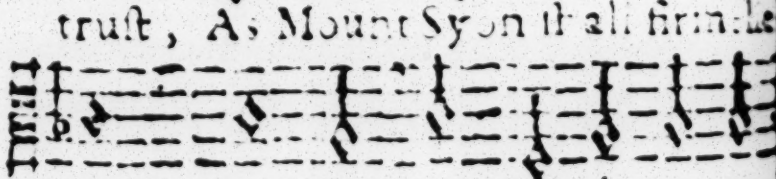 truſt, As Mount Syon ſhall firmelie